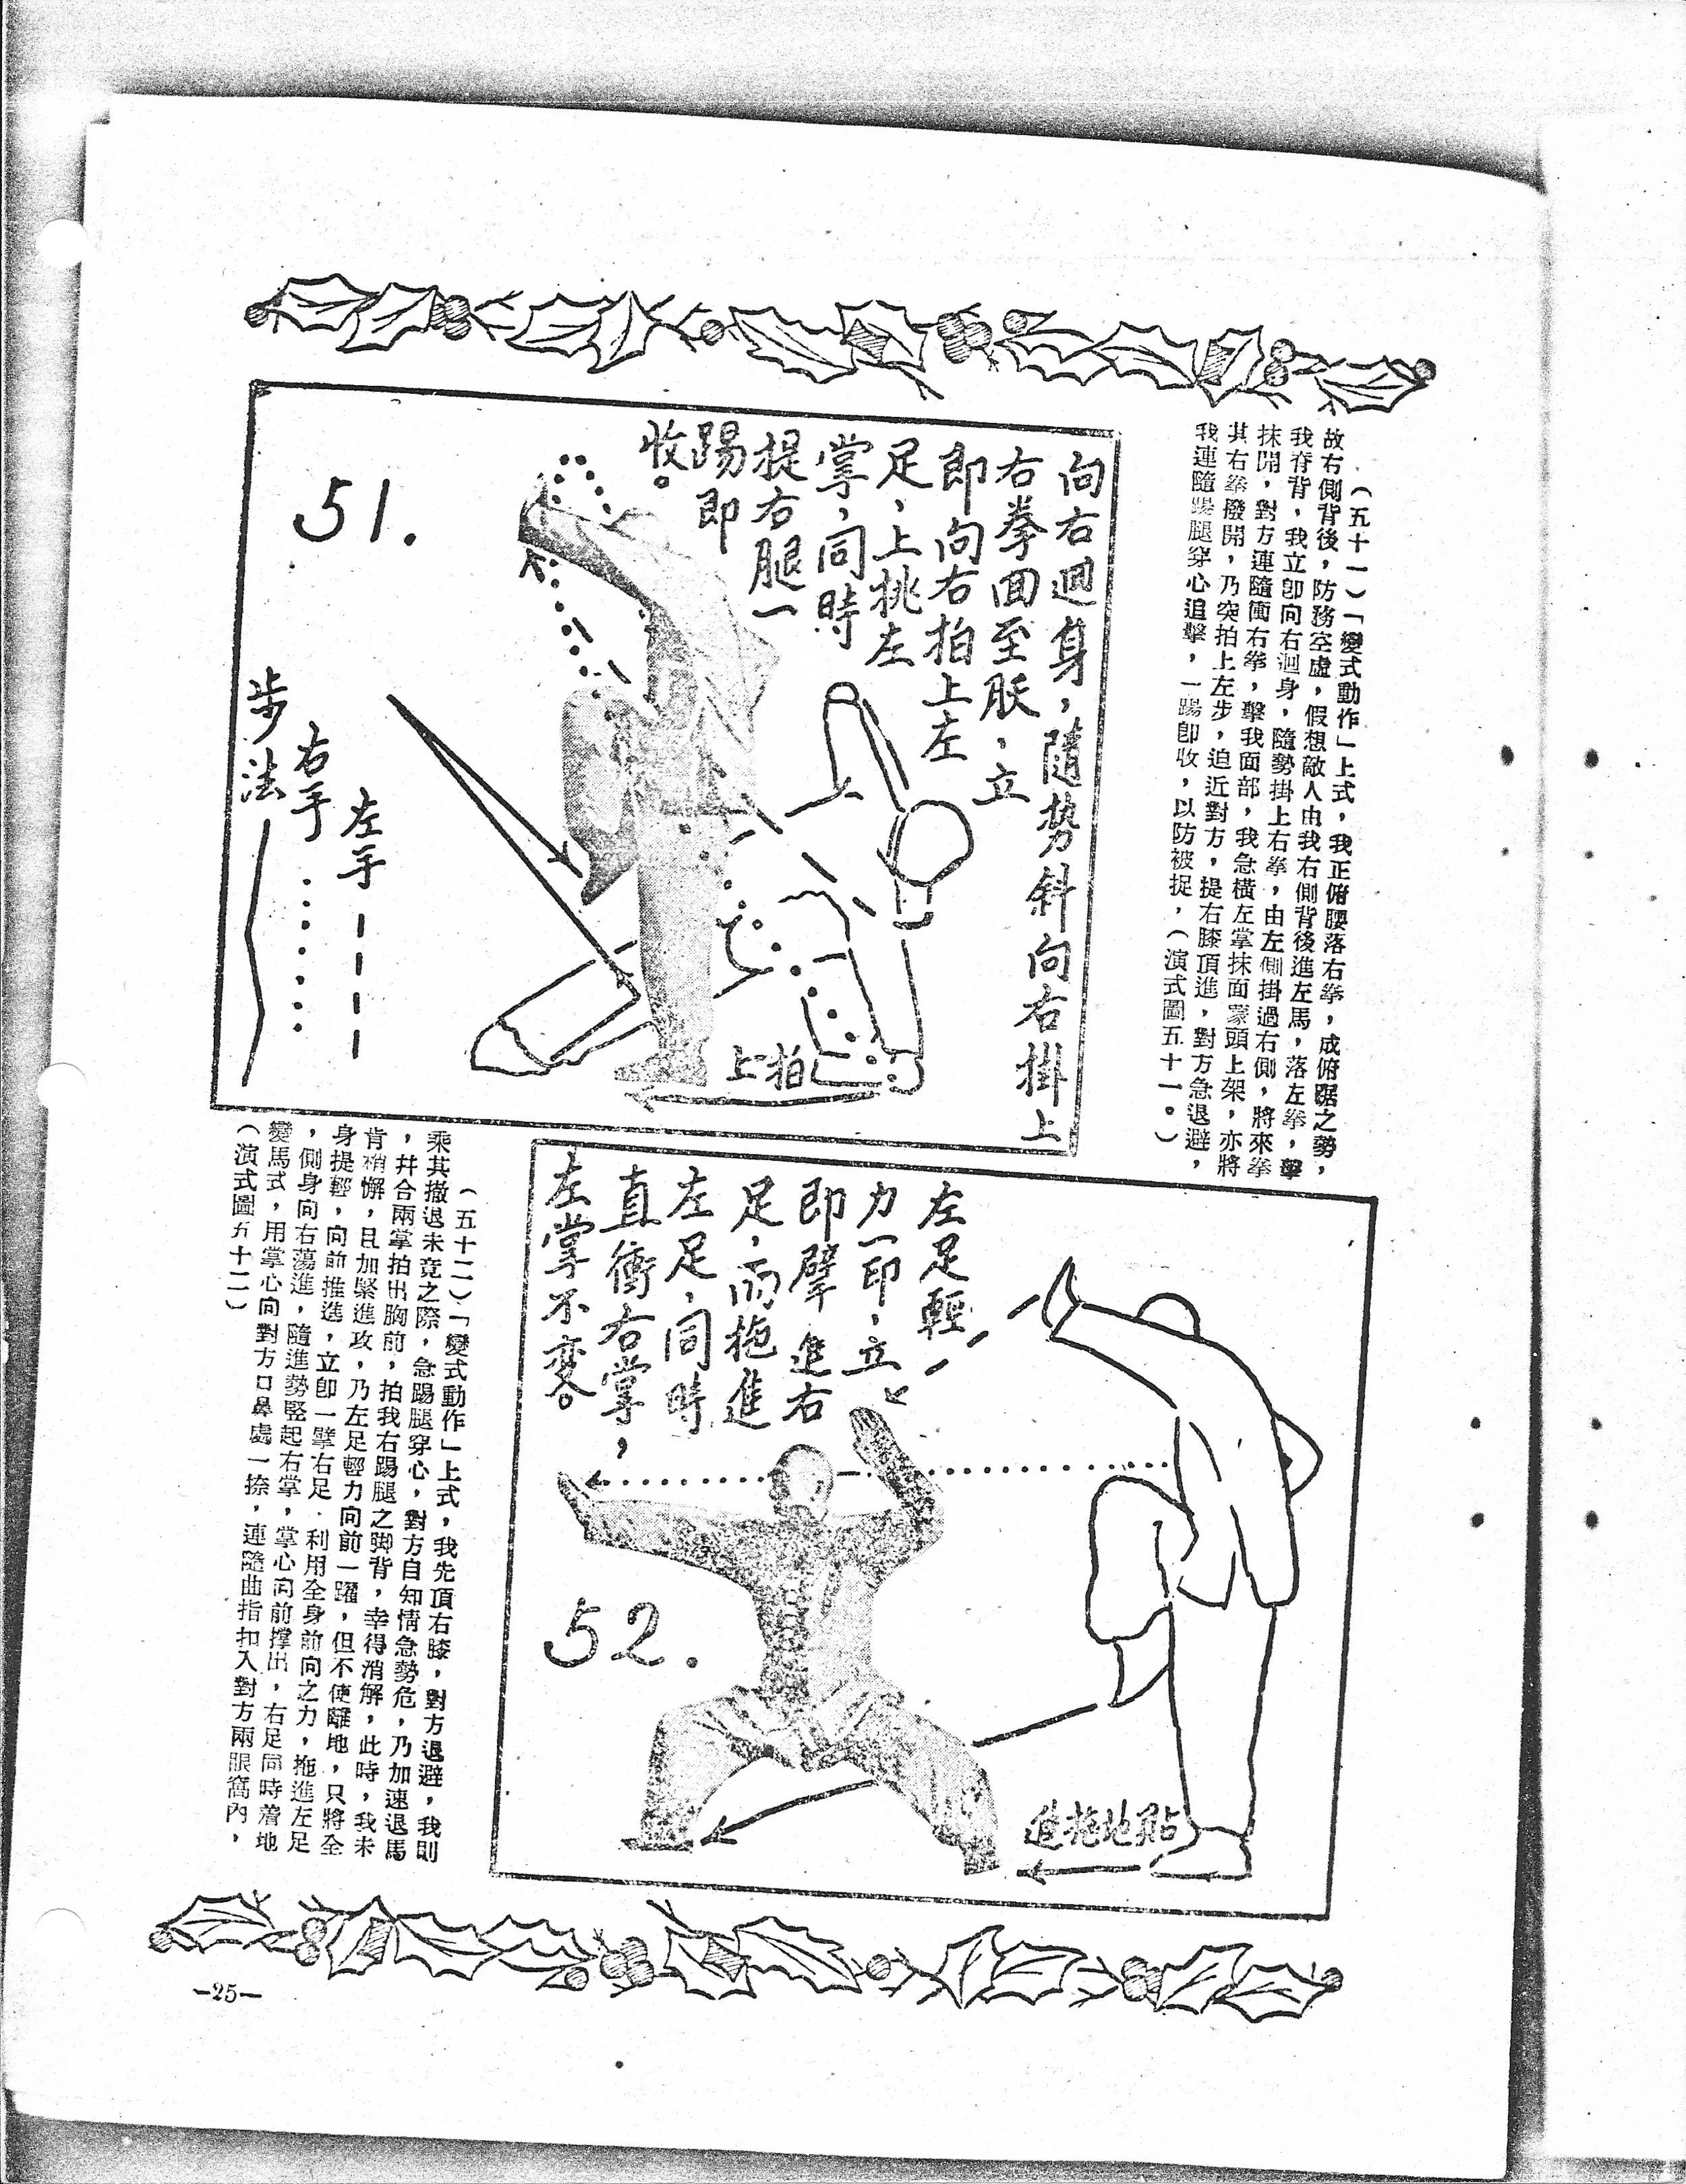 （五十一）「變式動作」上式，我正俯腰落右拳，成俯踞之勢，
故右側背後，防務空虛，假想敵人由我右側背後進左馬，落左拳，擊
我脊背，我立卽向右迴身，隨勢掛上右拳，由左側掛過右側，將來拳
抹開，對方連隨衝右拳，擊我面部，我急橫左掌抹面蒙頭上架，亦將
其右拳撥開，乃突拍上左步，迫近對方，提右膝頂進，對方急退避，
我連隨踢腿穿心追擊，一踢卽收，以防被捉，（演式圖五十一。）
向右迴身，隨勢斜向右掛上
右拳回至脤，立
即向右拍上左
足，上挑左
掌，同時
提右腿一
踢即
收。
51.
左手
右手
步法
上拍
左足輕
力一印，立
即擘進右
足，而拖進
左足，同時
直衝右掌，
左掌不変。
52.
進拖地貼
（五十二）「變式動作」上式，我先頂右膝，對方退避，我則
乘其撤退未竟之際，急踢腿穿心，對方自知情急勢危，乃加速退馬
，幷合兩掌拍出胸前，拍我右踢腿之脚背，幸得消解，此時，我未
肯稍懈，且加緊進攻，乃左足輕力向前一躍，但不使離地，只將全
身提輕，向前推進，立卽一擘右足，利用全身前向之力，拖進左足
，側身向右蕩進，隨進勢豎起右掌，掌心向前撐出，右足同時着地
變馬式，用掌心向對方口鼻處一捺，連隨曲指扣入對方兩眼窩內，
（演式圖五十二）
—25—